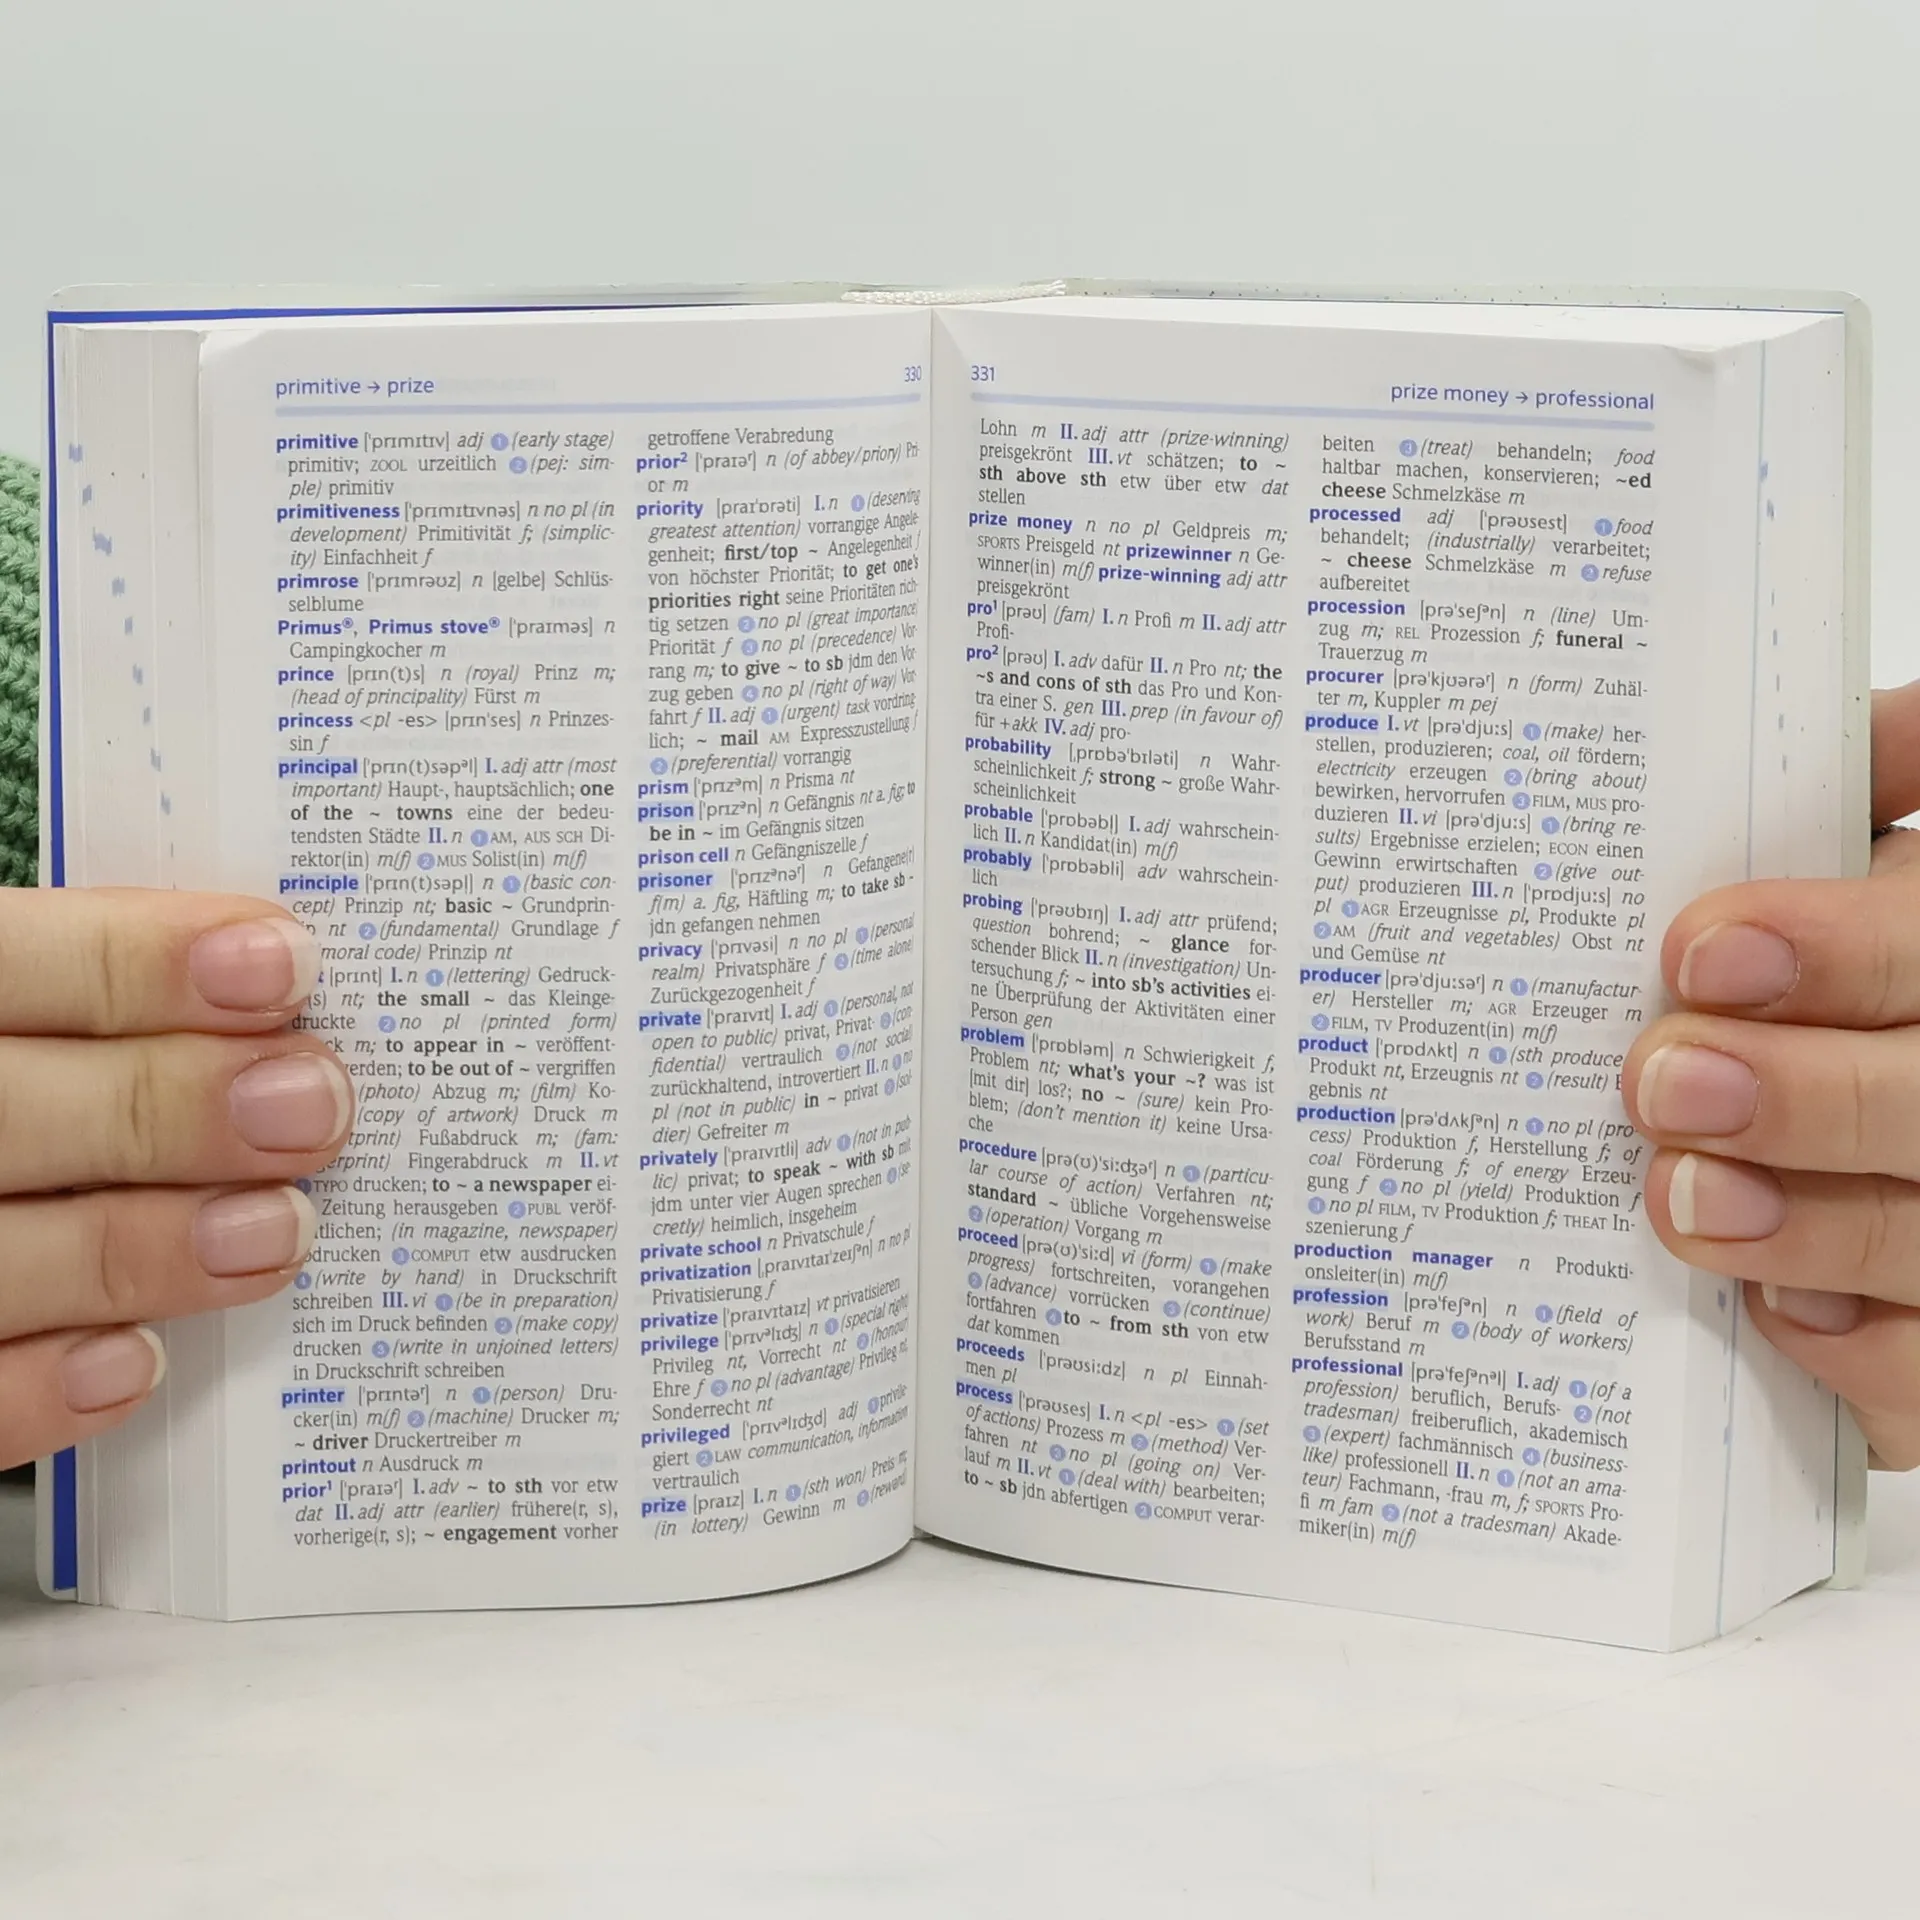 primitive → prize 330
primitive [ˈprɪmɪtɪv] adj ❶ (early stage)
primitiv; ZOOL urzeitlich ❷ (pej: sim-
ple) primitiv
primitiveness [ˈprɪmɪtɪvnəs] n no pl (in
development) Primitivität f; (simplic-
ity) Einfachheit f
primrose [ˈprɪmrəʊz] n [gelbe] Schlüs-
selblume
Primus®, Primus stove® [ˈpraɪməs] n
Campingkocher m
prince [prɪn(t)s] n (royal) Prinz m;
(head of principality) Fürst m
princess <pl -es> [prɪnˈses] n Prinzes-
sin f
principal [ˈprɪn(t)səpᵊl] I. adj attr (most
important) Haupt-, hauptsächlich; one
of the ~ towns eine der bedeu-
tendsten Städte II. n ❶ AM, AUS SCH Di-
rektor(in) m(f) ❷ MUS Solist(in) m(f)
principle [ˈprɪn(t)səpl̩] n ❶ (basic con-
cept) Prinzip nt; basic ~ Grundprin-
nt ❷ (fundamental) Grundlage f
moral code) Prinzip nt
[prɪnt] I. n ❶ (lettering) Gedruck-
(s) nt; the small ~ das Kleinge-
druckte ❷ no pl (printed form)
m; to appear in ~ veröffent-
to be out of ~ vergriffen
(photo) Abzug m; (film) Ko-
(copy of artwork) Druck m
Fußabdruck m; (fam:
Fingerabdruck m II. vt
TYPO drucken; to ~ a newspaper ei-
Zeitung herausgeben ❷ PUBL veröf-
(in magazine, newspaper)
❸ COMPUT etw ausdrucken
❹ (write by hand) in Druckschrift
schreiben III. vi ❶ (be in preparation)
sich im Druck befinden ❷ (make copy)
drucken ❸ (write in unjoined letters)
in Druckschrift schreiben
printer [ˈprɪntəʳ] n ❶ (person) Dru-
cker(in) m(f) ❷ (machine) Drucker m;
~ driver Druckertreiber m
printout n Ausdruck m
prior¹ [ˈpraɪəʳ] I. adv ~ to sth vor etw
dat II. adj attr (earlier) frühere(r, s),
vorherige(r, s); ~ engagement vorher
getroffene Verabredung
prior² [ˈpraɪəʳ] n (of abbey/priory) Pri-
or m
priority [praɪˈɒrəti] I. n ❶ (deserving
greatest attention) vorrangige Angele-
genheit; first/top ~ Angelegenheit f
von höchster Priorität; to get one's
priorities right seine Prioritäten rich-
tig setzen ❷ no pl (great importance)
Priorität f ❸ no pl (precedence) Vor-
rang m; to give ~ to sb jdm den Vor-
zug geben ❹ no pl (right of way) Vor-
fahrt f II. adj ❶ (urgent) task vordring-
lich; ~ mail AM Expresszustellung f
❷ (preferential) vorrangig
prism [ˈprɪzᵊm] n Prisma nt
prison [ˈprɪzᵊn] n Gefängnis nt a. fig; to
be in ~ im Gefängnis sitzen
prison cell n Gefängniszelle f
prisoner [ˈprɪzᵊnəʳ] n Gefangene(r)
f(m) a. fig, Häftling m; to take sb ~
jdn gefangen nehmen
privacy [ˈprɪvəsi] n no pl ❶ (personal
realm) Privatsphäre f ❷ (time alone)
Zurückgezogenheit f
private [ˈpraɪvɪt] I. adj ❶ (personal, not
open to public) privat, Privat- ❷ (con-
fidential) vertraulich ❸ (not social)
zurückhaltend, introvertiert II. n ❶ no
pl (not in public) in ~ privat ❷ (sol-
dier) Gefreiter m
privately [ˈpraɪvɪtli] adv ❶ (not in pub-
lic) privat; to speak ~ with sb mit
jdm unter vier Augen sprechen ❷ (se-
cretly) heimlich, insgeheim
private school n Privatschule f
privatization [ˌpraɪvɪtaɪˈzeɪʃᵊn] n no pl
Privatisierung f
privatize [ˈpraɪvɪtaɪz] vt privatisieren
privilege [ˈprɪvᵊlɪdʒ] n ❶ (special right)
Privileg nt, Vorrecht nt ❷ (honour)
Ehre f ❸ no pl (advantage) Privileg nt,
Sonderrecht nt
privileged [ˈprɪvᵊlɪdʒd] adj ❶ privile-
giert ❷ LAW communication, information
vertraulich
prize [praɪz] I. n ❶ (sth won) Preis m;
(in lottery) Gewinn m ❷ (reward)
331 prize money → professional
Lohn m II. adj attr (prize-winning)
preisgekrönt III. vt schätzen; to ~
sth above sth etw über etw dat
stellen
prize money n no pl Geldpreis m;
SPORTS Preisgeld nt prizewinner n Ge-
winner(in) m(f) prize-winning adj attr
preisgekrönt
pro¹ [prəʊ] (fam) I. n Profi m II. adj attr
Profi-
pro² [prəʊ] I. adv dafür II. n Pro nt; the
~s and cons of sth das Pro und Kon-
tra einer S. gen III. prep (in favour of)
für +akk IV. adj pro-
probability [ˌprɒbəˈbɪləti] n Wahr-
scheinlichkeit f; strong ~ große Wahr-
scheinlichkeit
probable [ˈprɒbəbl̩] I. adj wahrschein-
lich II. n Kandidat(in) m(f)
probably [ˈprɒbəbli] adv wahrschein-
lich
probing [ˈprəʊbɪŋ] I. adj attr prüfend;
question bohrend; ~ glance for-
schender Blick II. n (investigation) Un-
tersuchung f; ~ into sb's activities ei-
ne Überprüfung der Aktivitäten einer
Person gen
problem [ˈprɒbləm] n Schwierigkeit f,
Problem nt; what's your ~? was ist
[mit dir] los?; no ~ (sure) kein Pro-
blem; (don't mention it) keine Ursa-
che
procedure [prə(ʊ)ˈsiːdʒəʳ] n ❶ (particu-
lar course of action) Verfahren nt;
standard ~ übliche Vorgehensweise
❷ (operation) Vorgang m
proceed [prə(ʊ)ˈsiːd] vi (form) ❶ (make
progress) fortschreiten, vorangehen
❷ (advance) vorrücken ❸ (continue)
fortfahren ❹ to ~ from sth von etw
dat kommen
proceeds [ˈprəʊsiːdz] n pl Einnah-
men pl
process [ˈprəʊses] I. n <pl -es> ❶ (set
of actions) Prozess m ❷ (method) Ver-
fahren nt ❸ no pl (going on) Ver-
lauf m II. vt ❶ (deal with) bearbeiten;
to ~ sb jdn abfertigen ❷ COMPUT verar-
beiten ❸ (treat) behandeln; food
haltbar machen, konservieren; ~ed
cheese Schmelzkäse m
processed adj [ˈprəʊsest] ❶ food
behandelt; (industrially) verarbeitet;
~ cheese Schmelzkäse m ❷ refuse
aufbereitet
procession [prəˈseʃᵊn] n (line) Um-
zug m; REL Prozession f; funeral ~
Trauerzug m
procurer [prəˈkjʊərəʳ] n (form) Zuhäl-
ter m, Kuppler m pej
produce I. vt [prəˈdjuːs] ❶ (make) her-
stellen, produzieren; coal, oil fördern;
electricity erzeugen ❷ (bring about)
bewirken, hervorrufen ❸ FILM, MUS pro-
duzieren II. vi [prəˈdjuːs] ❶ (bring re-
sults) Ergebnisse erzielen; ECON einen
Gewinn erwirtschaften ❷ (give out-
put) produzieren III. n [ˈprɒdjuːs] no
pl ❶ AGR Erzeugnisse pl, Produkte pl
❷ AM (fruit and vegetables) Obst nt
und Gemüse nt
producer [prəˈdjuːsəʳ] n ❶ (manufactur-
er) Hersteller m; AGR Erzeuger m
❷ FILM, TV Produzent(in) m(f)
product [ˈprɒdʌkt] n ❶ (sth produce
Produkt nt, Erzeugnis nt ❷ (result)
gebnis nt
production [prəˈdʌkʃᵊn] n ❶ no pl (pro-
cess) Produktion f, Herstellung f; of
coal Förderung f; of energy Erzeu-
gung f ❷ no pl (yield) Produktion f
❸ no pl FILM, TV Produktion f; THEAT In-
szenierung f
production manager n Produkti-
onsleiter(in) m(f)
profession [prəˈfeʃᵊn] n ❶ (field of
work) Beruf m ❷ (body of workers)
Berufsstand m
professional [prəˈfeʃᵊnᵊl] I. adj ❶ (of a
profession) beruflich, Berufs- ❷ (not
tradesman) freiberuflich, akademisch
❸ (expert) fachmännisch ❹ (business-
like) professionell II. n ❶ (not an ama-
teur) Fachmann, -frau m, f; SPORTS Pro-
fi m fam ❷ (not a tradesman) Akade-
miker(in) m(f)